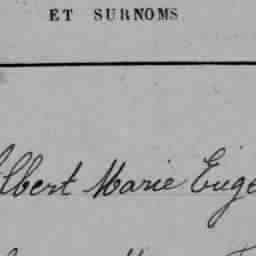 ET SURNOMS
Albert Marie Euge